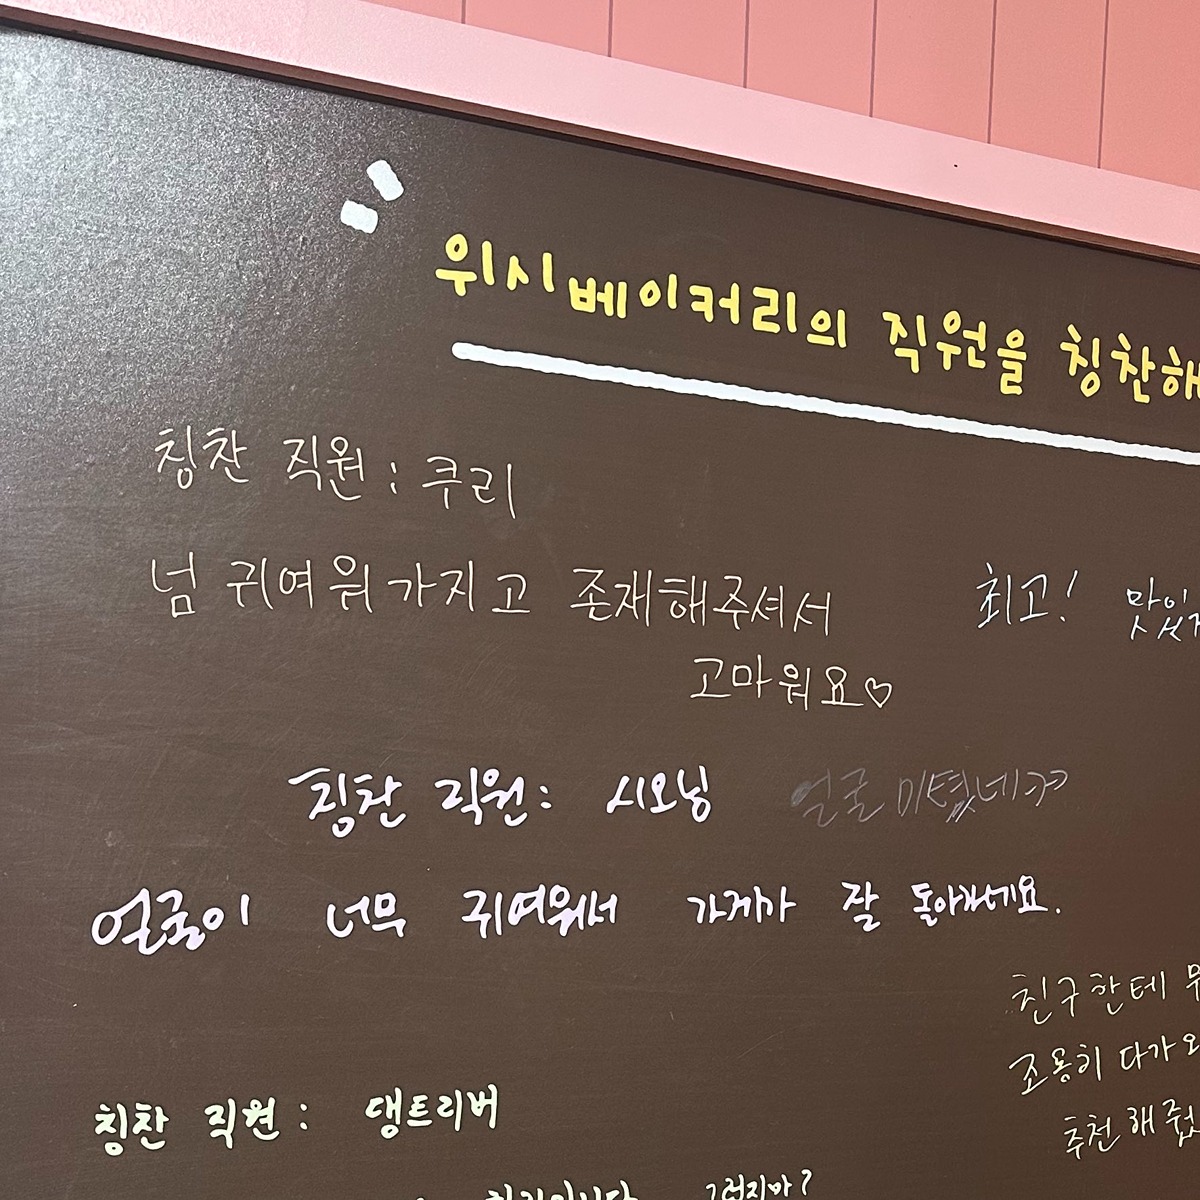 위시 베이커리의 직원을 칭찬해
칭찬 직원 : 쿠리
넘 귀여워가지고 존재해주셔서
고마워요♡
최고! 맛있
칭찬 직원 : 시오닝
얼굴이 너무 귀여워서 가게가 잘 돌아가네요.
친구한테
조용히 다가오
추천해줬
칭찬 직원 : 댕트리버
그렇지마?